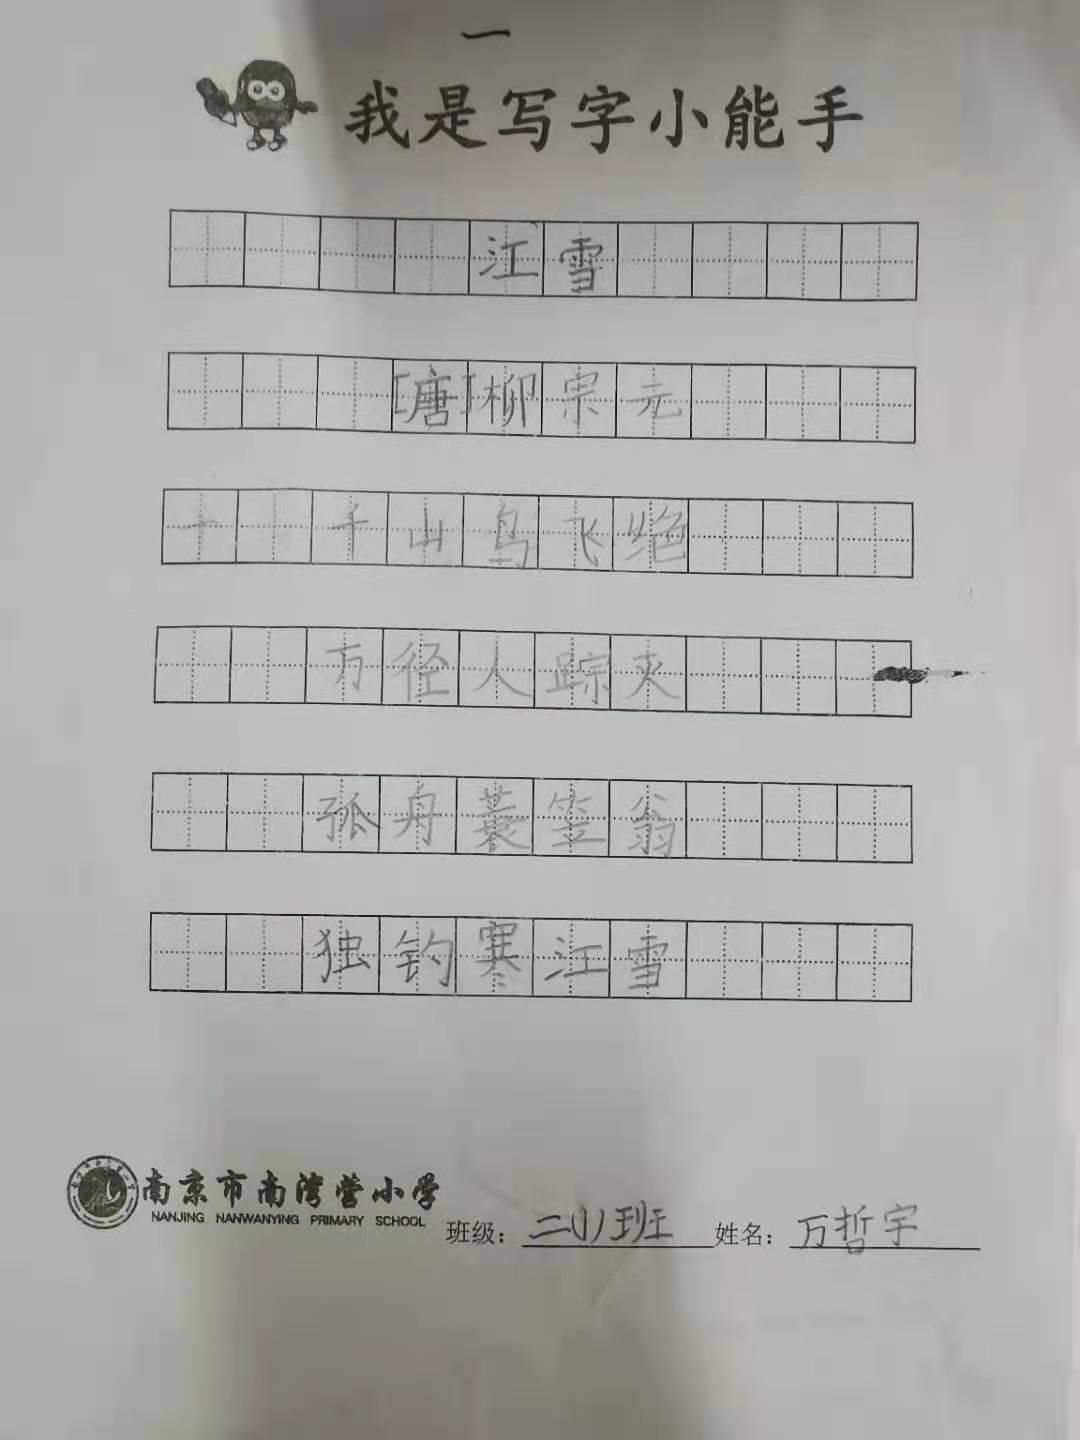 一
我是写字小能手
江雪
[唐]柳宗元
千山鸟飞绝
万径人踪灭
孤舟蓑笠翁
独钓寒江雪
南京市南湾营小学
NANJING NANWANYING PRIMARY SCHOOL
班级：二(1)班 姓名：万哲宇